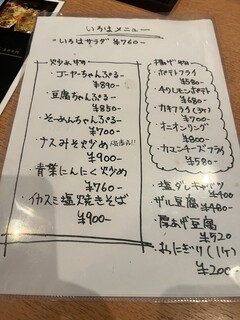 いろはメニュー
・いろはサラダ ¥760-
炒め物
・ゴーヤーちゃんぷるー
¥890-
・豆腐ちゃんぷるー
¥850-
・そーめんちゃんぷるー
¥700-
・ナスみそ炒め
¥900-
・青菜にんにく炒め
¥760-
・イカスミ塩焼きそば
¥900-
揚げ物
・ポテトフライ
¥580-
¥680-
・カキフライ
¥700-
・オニオンリング
¥800-
・カニチーズフライ
¥580-
・塩ダレキャベツ
¥400-
・ザル豆腐 ¥480-
・厚あげ豆腐
¥520
・おにぎり(1ケ)
¥200